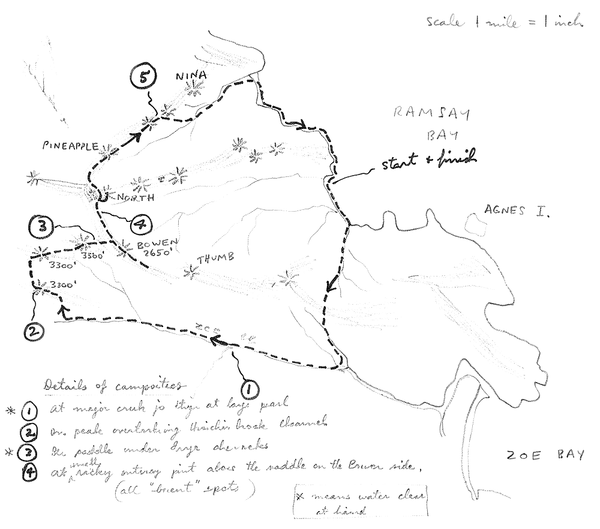 scale 1 mile = 1 inch
5
NINA
RAMSAY
BAY
PINEAPPLE
start & finish
NORTH
AGNES I.
3
4
BOWEN
2650'
3500'
3300'
THUMB
3300'
2
1
ZOE BAY
Details of campsities
* 1 at major creek jo at large pool
2 on peak overlooking brook channel
* 3 In saddle under large
4 at small rocky outway just above the saddle on the Bowen side.
(all spots)
* means water close
at hand